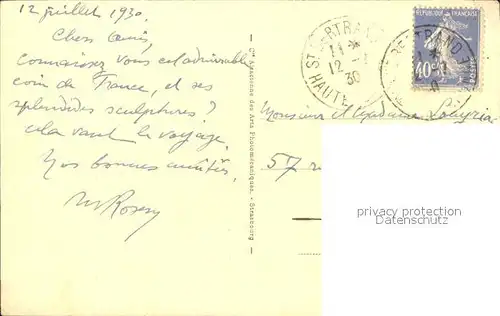 12 juillet 1930.
Chers Amis,
connaissez vous cet admirable
coin de France, et ses
splendides sculptures?
cela vaut le voyage.
Nos bonnes amitiés,
Cie Alsacienne des Arts Photomécaniques. - Strasbourg
ST BERTRAND
11 -
12 - 7
30
HAUTE
REPUBLIQUE FRANÇAISE
40c
POSTES
BERTRAND
Monsieur et Madame
57 r
privacy protection
www.ansichtskartenversand.com